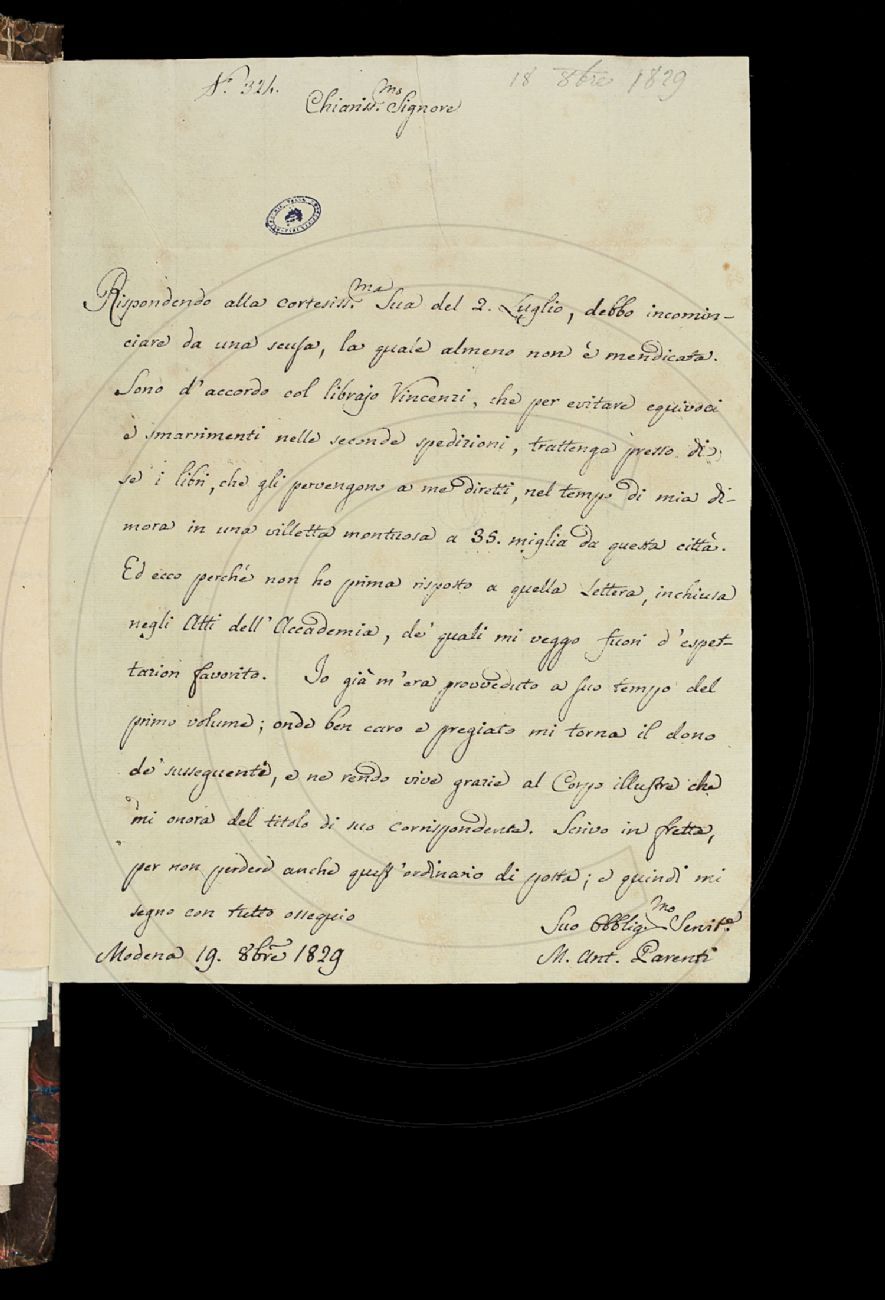 N.° 324.
18 8bre 1829
Chiariss.mo Signore
Rispondendo alla cortesiss.ma Sua del 2. Luglio, debbo incomin-
ciare da una scusa, la quale almeno non è mendicata.
Sono d'accordo col librajo Vincenzi, che per evitare equivoci
e smarrimenti nelle seconde spedizioni, trattenga presso di
se i libri, che gli pervengono a me diretti, nel tempo di mia di-
mora in una villetta montuosa a 35. miglia da questa città.
Ed ecco perchè non ho prima risposto a quella Lettera, inchiusa
negli Atti dell'Accademia, de' quali mi veggo fuori d'espet-
tazion favorito. Io già m'era provveduto a suo tempo del
primo volume; onde ben caro e pregiato mi torna il dono
de' susseguenti, e ne rendo vive grazie al Corpo illustre che
mi onora del titolo di suo corrispondente. Scrivo in fretta,
per non perdere anche quest'ordinario di posta; e quindi mi
segno con tutto ossequio
Suo Obblig.mo Servit.e
Modena 19. 8bre 1829
M. Ant. Parenti